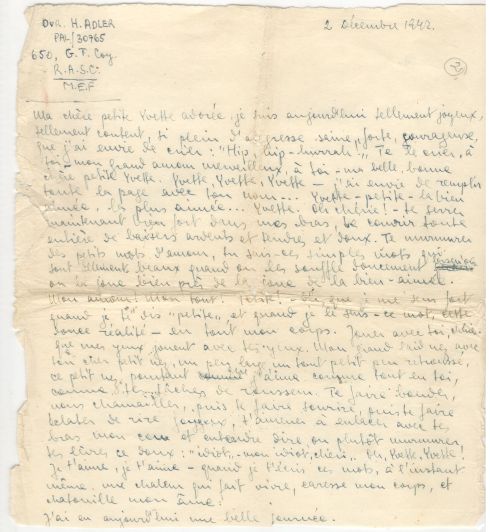 DVR. H. ADLER
PAL/30965
650, G. T. Coy
R.A.S.C.
M.E.F
2 Décembre 1942.
Ma chère petite Yvette adorée, je suis aujourd'hui tellement joyeux,
tellement content, si plein d'allégresse saine, forte, courageuse,
que j'ai envie de crier: "Hip, hip-hurrah-" Te le crier, à
toi - mon grand amour merveilleux, à toi - ma belle, bonne
chère petite Yvette. Yvette, Yvette, Yvette - j'ai envie de remplir
toute la page avec ton nom... Yvette - petite - le bien
aimée, la plus aimée... Yvette. Oh, chérie! - te serrer
maintenant bien fort dans mes bras, te couvrir toute
entière de baisers ardents et tendres et doux. Te murmurer
des petits mots d'amour, tu sais - ces simples mots qui
sont tellement beaux quand on les souffle doucement
on la joue bien près de la joue de la bien-aimée.
Mon amour! Mon tout! Petite! - Oh, que je me sens fort
quand je te dis "petite", et quand je le sais - ce mot, cette
douce réalité - en tout mon corps. Jouer avec toi, chérie
que mes yeux jouent avec tes yeux. Mon grand laid nez avec
ton cher petit nez, un peu large, un tout petit peu retroussé,
ce petit nez, pourtant j'aime comme tout en toi,
comme tes tâches de rousseur. Te faire bouder,
nous chamailler, puis te faire sourire, puis te faire
éclater de rire joyeux, t'amener à enlacer avec tes
bras mon cou et entendre dire ou plutôt murmurer
tes lèvres ce doux: "idiot, - mon idiot, chéri". Oh, Yvette, Yvette!
Je t'aime, je t'aime - quand je t'écris ces mots, à l'instant
même une chaleur qui fait vivre, caresse mon corps, et
chatouille mon âme.
J'ai eu aujourd'hui une belle journée.